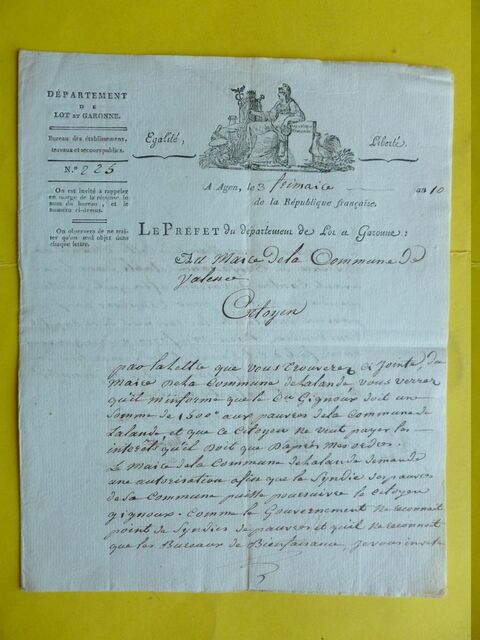 DÉPARTEMENT
DE
LOT ET GARONNE.
Bureau des établissemens,
travaux et secours publics.
N.º 225
On est invité à rappeler
en marge de la réponse le
nom du bureau, et le
numéro ci-dessus.
On observera de ne trai-
ter qu'un seul objet dans
chaque lettre.
Egalité,
Liberté.
A Agen, le 3 frimaire an 10
de la République française.
LE PRÉFET du département de Lot et Garonne:
Au Maire de la Commune de
Valence
Citoyen
par la lettre que vous trouverez ci Jointe, du
Maire de la Commune de lalande vous verrez
qu'il m'informe que le Du Gignoux doit une
Somme de 1500 aux pauvres de la Commune de
Lalande et que ce Citoyen ne veut payer les
interêts qu'il doit que d'après mes ordres.
Le Maire de la Commune de lalande demande
une autorisation afin que le Syndic des pauvres
de sa Commune puisse poursuivre le Citoyen
gignoux. Comme le Gouvernement ne reconnait
point de Syndics de pauvres et qu'il ne reconnoit
que les Bureaux de Bienfaisance, je vous invite